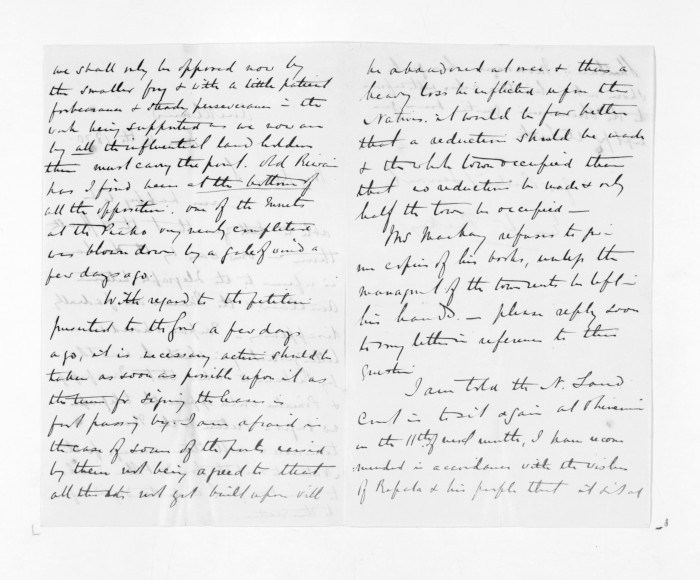 we shall only be opposed now by
the smaller fry & with a little patient
forbearance & steady perseverance in the
work being supported as we now are
by all the influential land holders
then must carry the point. Old
has I find been at the bottom of
all the opposition. One of the
at the very nearly completed
was blown down by a gale of wind a
few days ago.
With regard to the petition
presented to the Govr a few days
ago, it is necessary action should be
taken as soon as possible upon it as
the time for signing the leases is
fast passing by. I am afraid in
the case of some of the points raised
by them not being agreed to that
all the lots not yet built upon will
be abandoned at once & thus a
heavy loss be inflicted upon the
Natives. it would be far better
that a reduction should be made
& the whole town occupied than
that no reduction be made & only
half the town be occupied —
Mr Mackay refuses to give
me copies of his books, unless the
managmt of the town rents be left in
his hands. — please reply soon
to my letter in reference to this
question
I am told the N. Land
Court is to sit again at
on the 11th of next month, I have recom
mended in accordance with the wishes
of Ropata & his people that it sit at